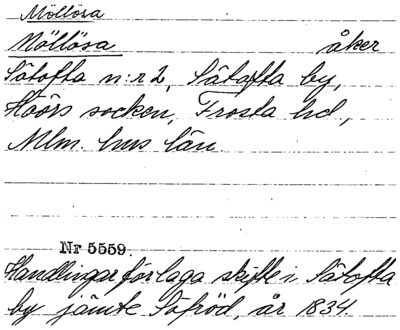 Möllösa
Möllösa åker
Sätofta n:r 2, Sätofta by,
Höörs socken, Frosta hd,
Mlm. hus län.
Nr 5559.
Handlingar för laga skifte i Sätofta
by jämte Säfröd, år 1834